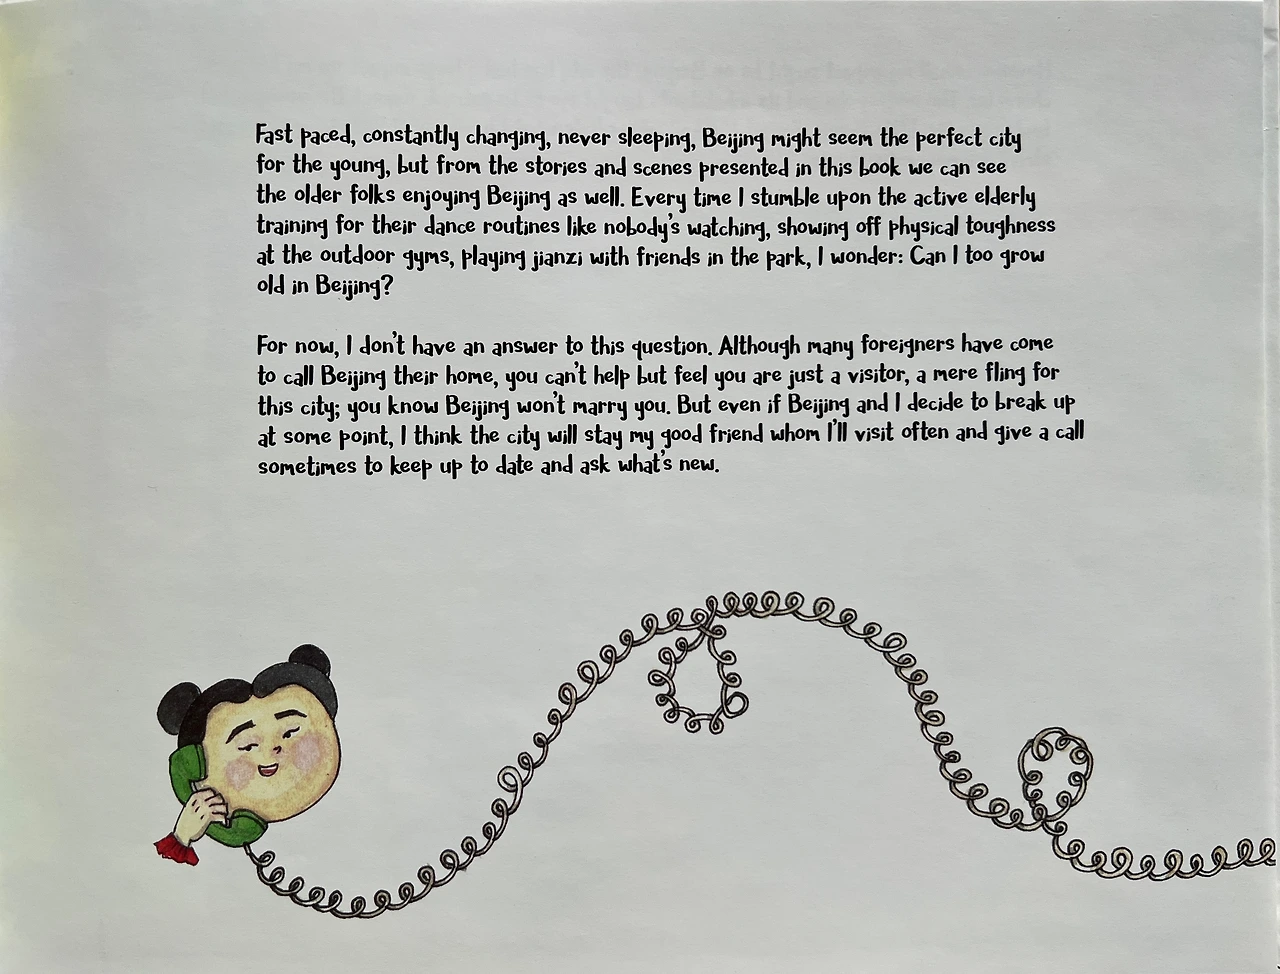 Fast paced, constantly changing, never sleeping, Beijing might seem the perfect city
for the young, but from the stories and scenes presented in this book we can see
the older folks enjoying Beijing as well. Every time I stumble upon the active elderly
training for their dance routines like nobody's watching, showing off physical toughness
at the outdoor gyms, playing jianzi with friends in the park, I wonder: Can I too grow
old in Beijing?
For now, I don't have an answer to this question. Although many foreigners have come
to call Beijing their home, you can't help but feel you are just a visitor, a mere fling for
this city; you know Beijing won't marry you. But even if Beijing and I decide to break up
at some point, I think the city will stay my good friend whom I'll visit often and give a call
sometimes to keep up to date and ask what's new.